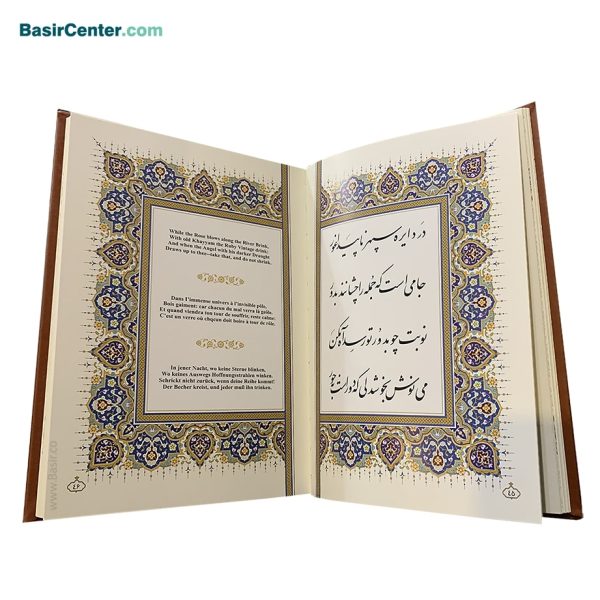 BasirCenter.com
در دایره سپهر ناپیدا غور
جامی است که جمله را چشانند بدور
نوبت چو بدور تو رسد آه مکن
می نوش بخوشدلی که دور است نه جور
٤٥
While the Rose blows along the River Brink,
With old Khayyam the Ruby Vintage drink:
And when the Angel with his darker Draught
Draws up to thee--take that, and do not shrink.
Dans l'immense univers à l'invisible pôle,
Bois gaiment: car chacun du mal verra la geôle.
Et quand viendra ton tour de souffrir, reste calme:
C'est un verre où chqcun doit boire à tour de rôle.
In jener Nacht, wo keine Sterne blinken,
Wo keines Auswegs Hoffnungsstrahlen winken.
Schrickt nicht zurück, wenn deine Reihe kommt!
Der Becher kreist, und jeder muß ihn trinken.
٤٦
www.Basir.co